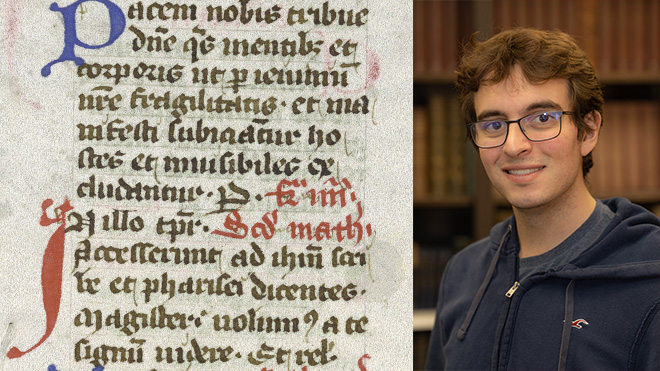 Pacem nobis tribue
dn̄e q̄s mentibꝫ et
corporis ut ꝑ ieiuniū
nr̄e fragilitatis· et ma
nifesti subiciātur ho
stes et inuisibiles ex
cludantur· P.
In illo tp̄r. Scd̄ math·
Accesserunt ad ihm̄ scri
be et pharisei dicentes·
Magister· uolumꝰ a te
signū uidere· Et rel̄·